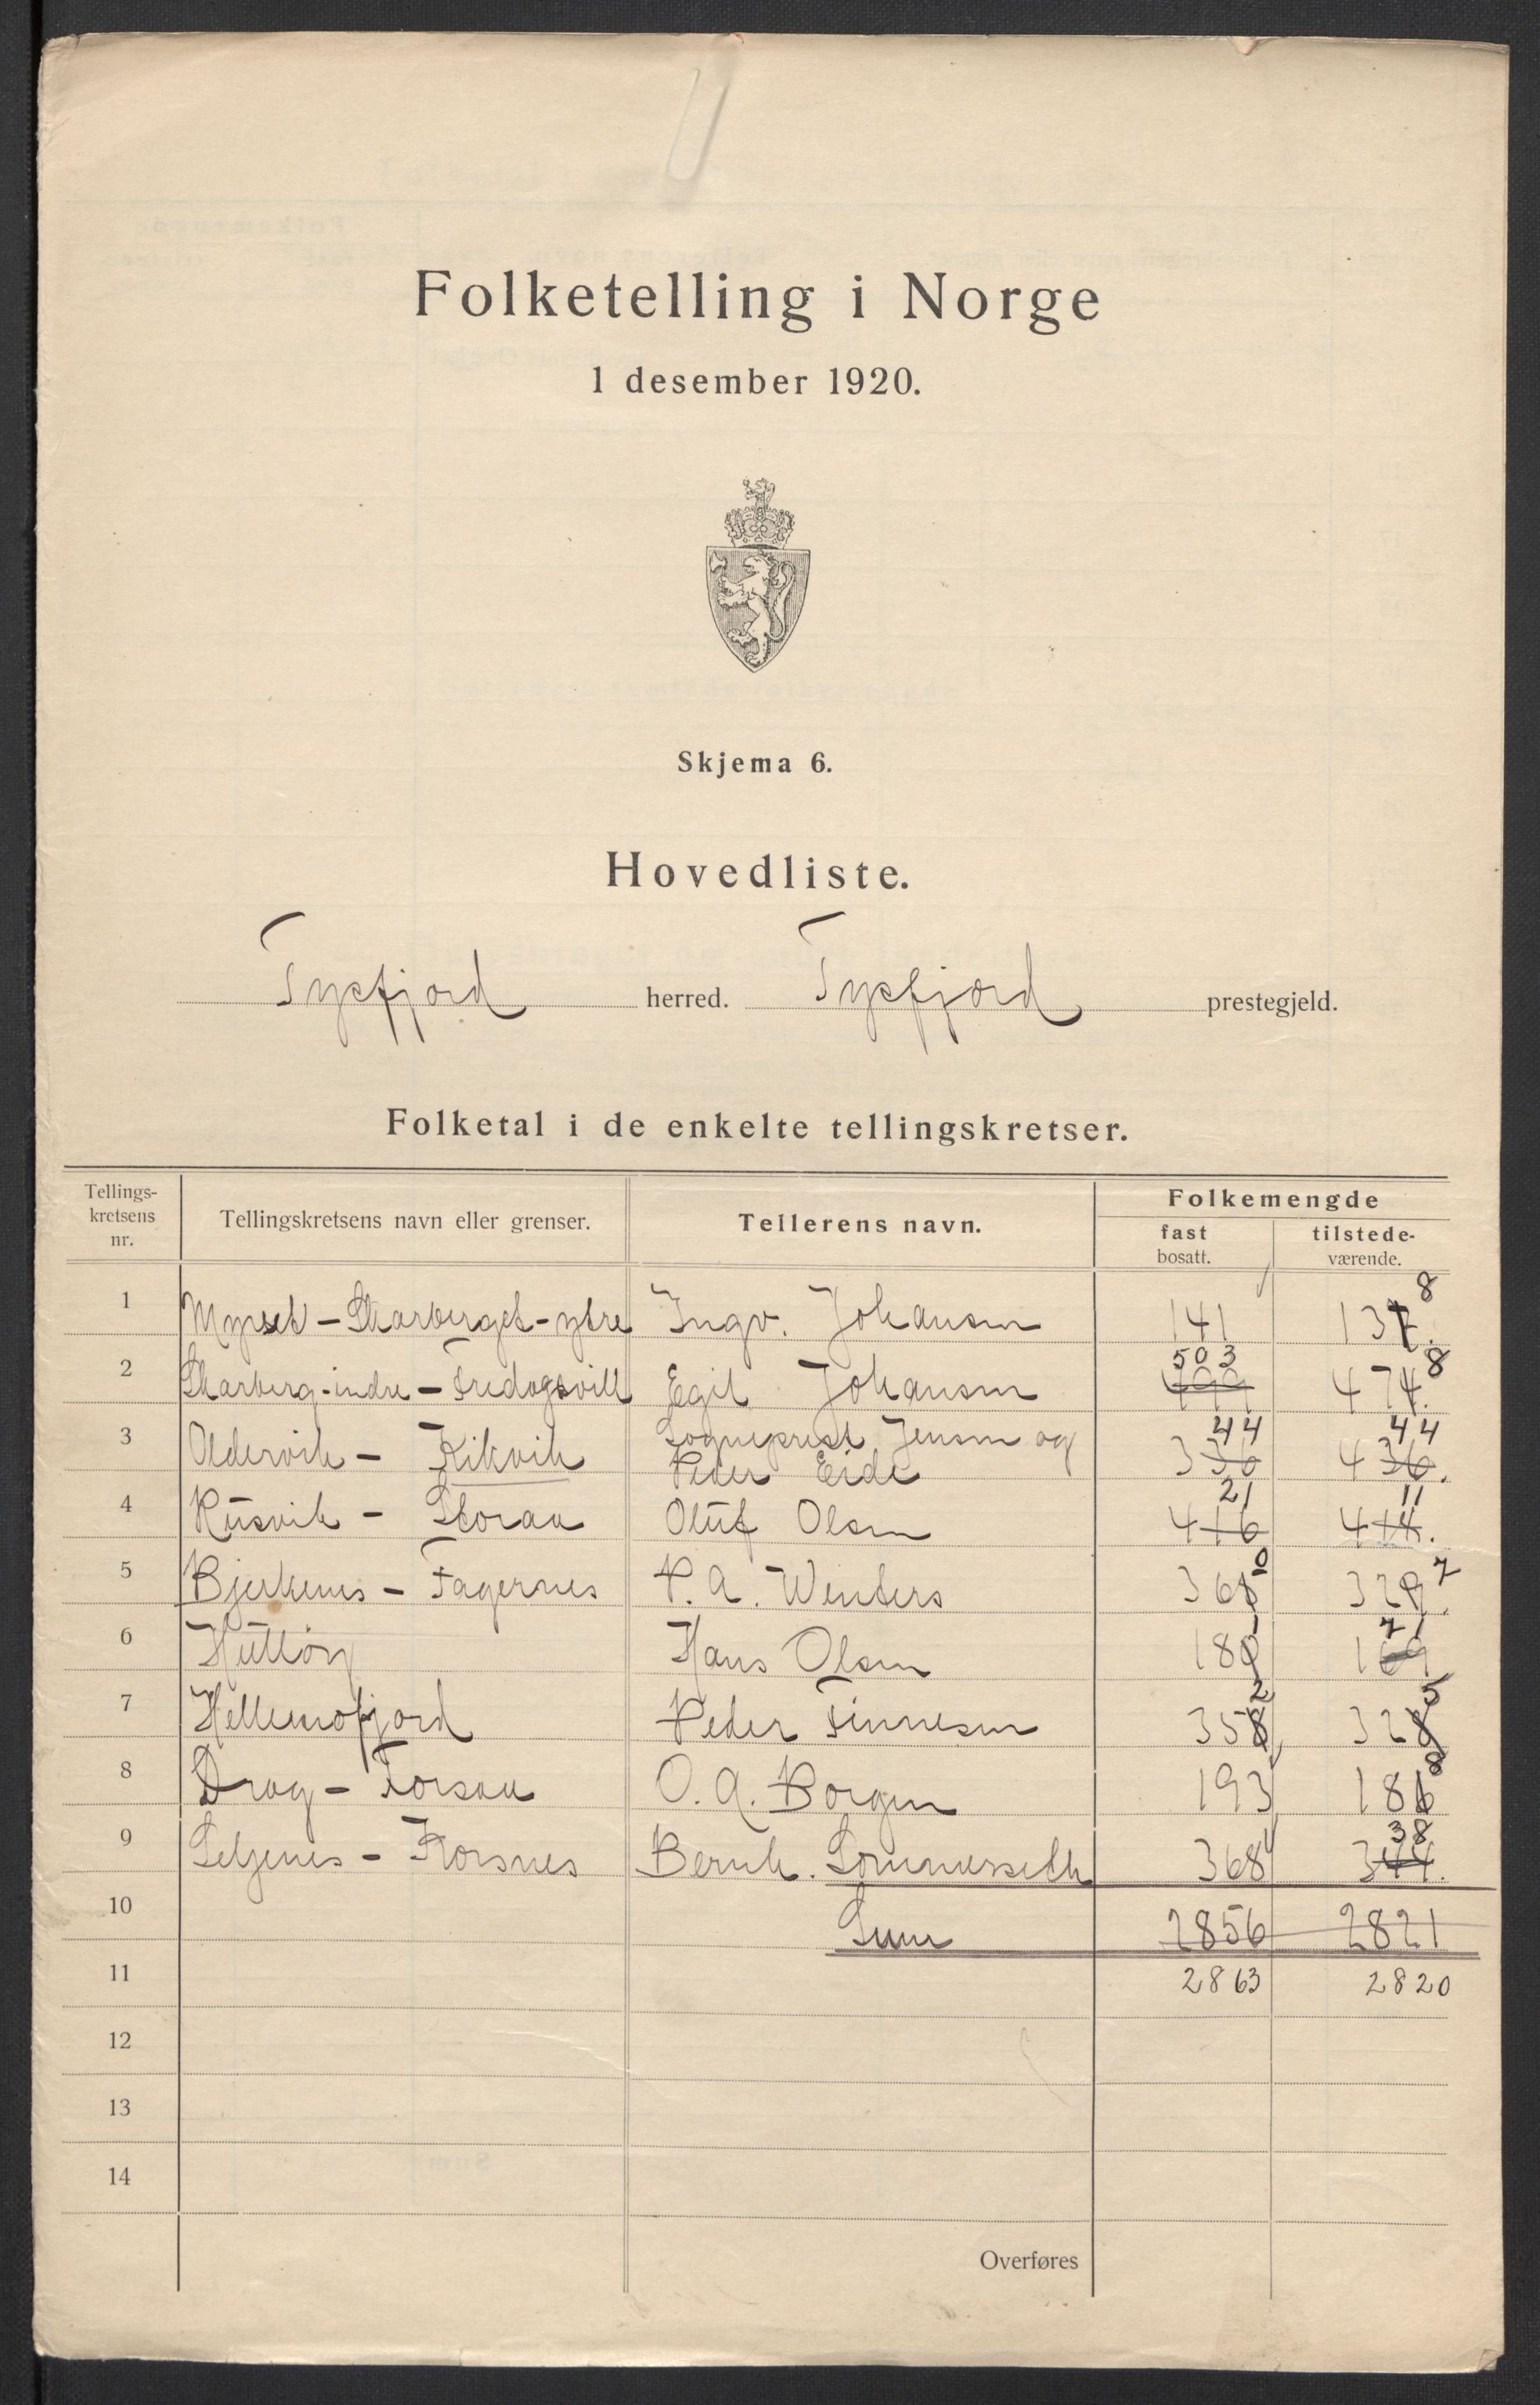 Folketelling i Norge
1 desember 1920.
Skjema 6.
Hovedliste.
Tysfjord herred. Tysfjord prestegjeld.
Folketal i de enkelte tellingskretser.
Tellings-
kretsens
nr.
Tellingskretsens navn eller grenser.
Tellerens navn.
Folkemengde
fast
bosatt.
tilstede-
værende.
1 Myrset - Skarberget - ytre Ingv. Johansen 141 137. 8
2 Skarberg - indre - Fredagsvill Egil Johansen 499 503 474. 8
3 Oldervik - Kikvik Sogneprest Jensen og
Peder Eide 336 44 436. 44
4 Rusvik - Storaa Oluf Olsen 416 21 414. 11
5 Bjerknes - Fagernes P. A. Wenters 368 0 329. 7
6 Hulløy Hans Olsen 180 1 169 71
7 Hellemofjord Peder Finnesen 358 2 328 5
8 Drag - Forsaa O. A. Borgen 193 186 8
9 Seljenes - Korsnes Bernh. Sommerseth 368 344. 38
10 Sum 2856 2821
11 2863 2820
12
13
14
Overføres